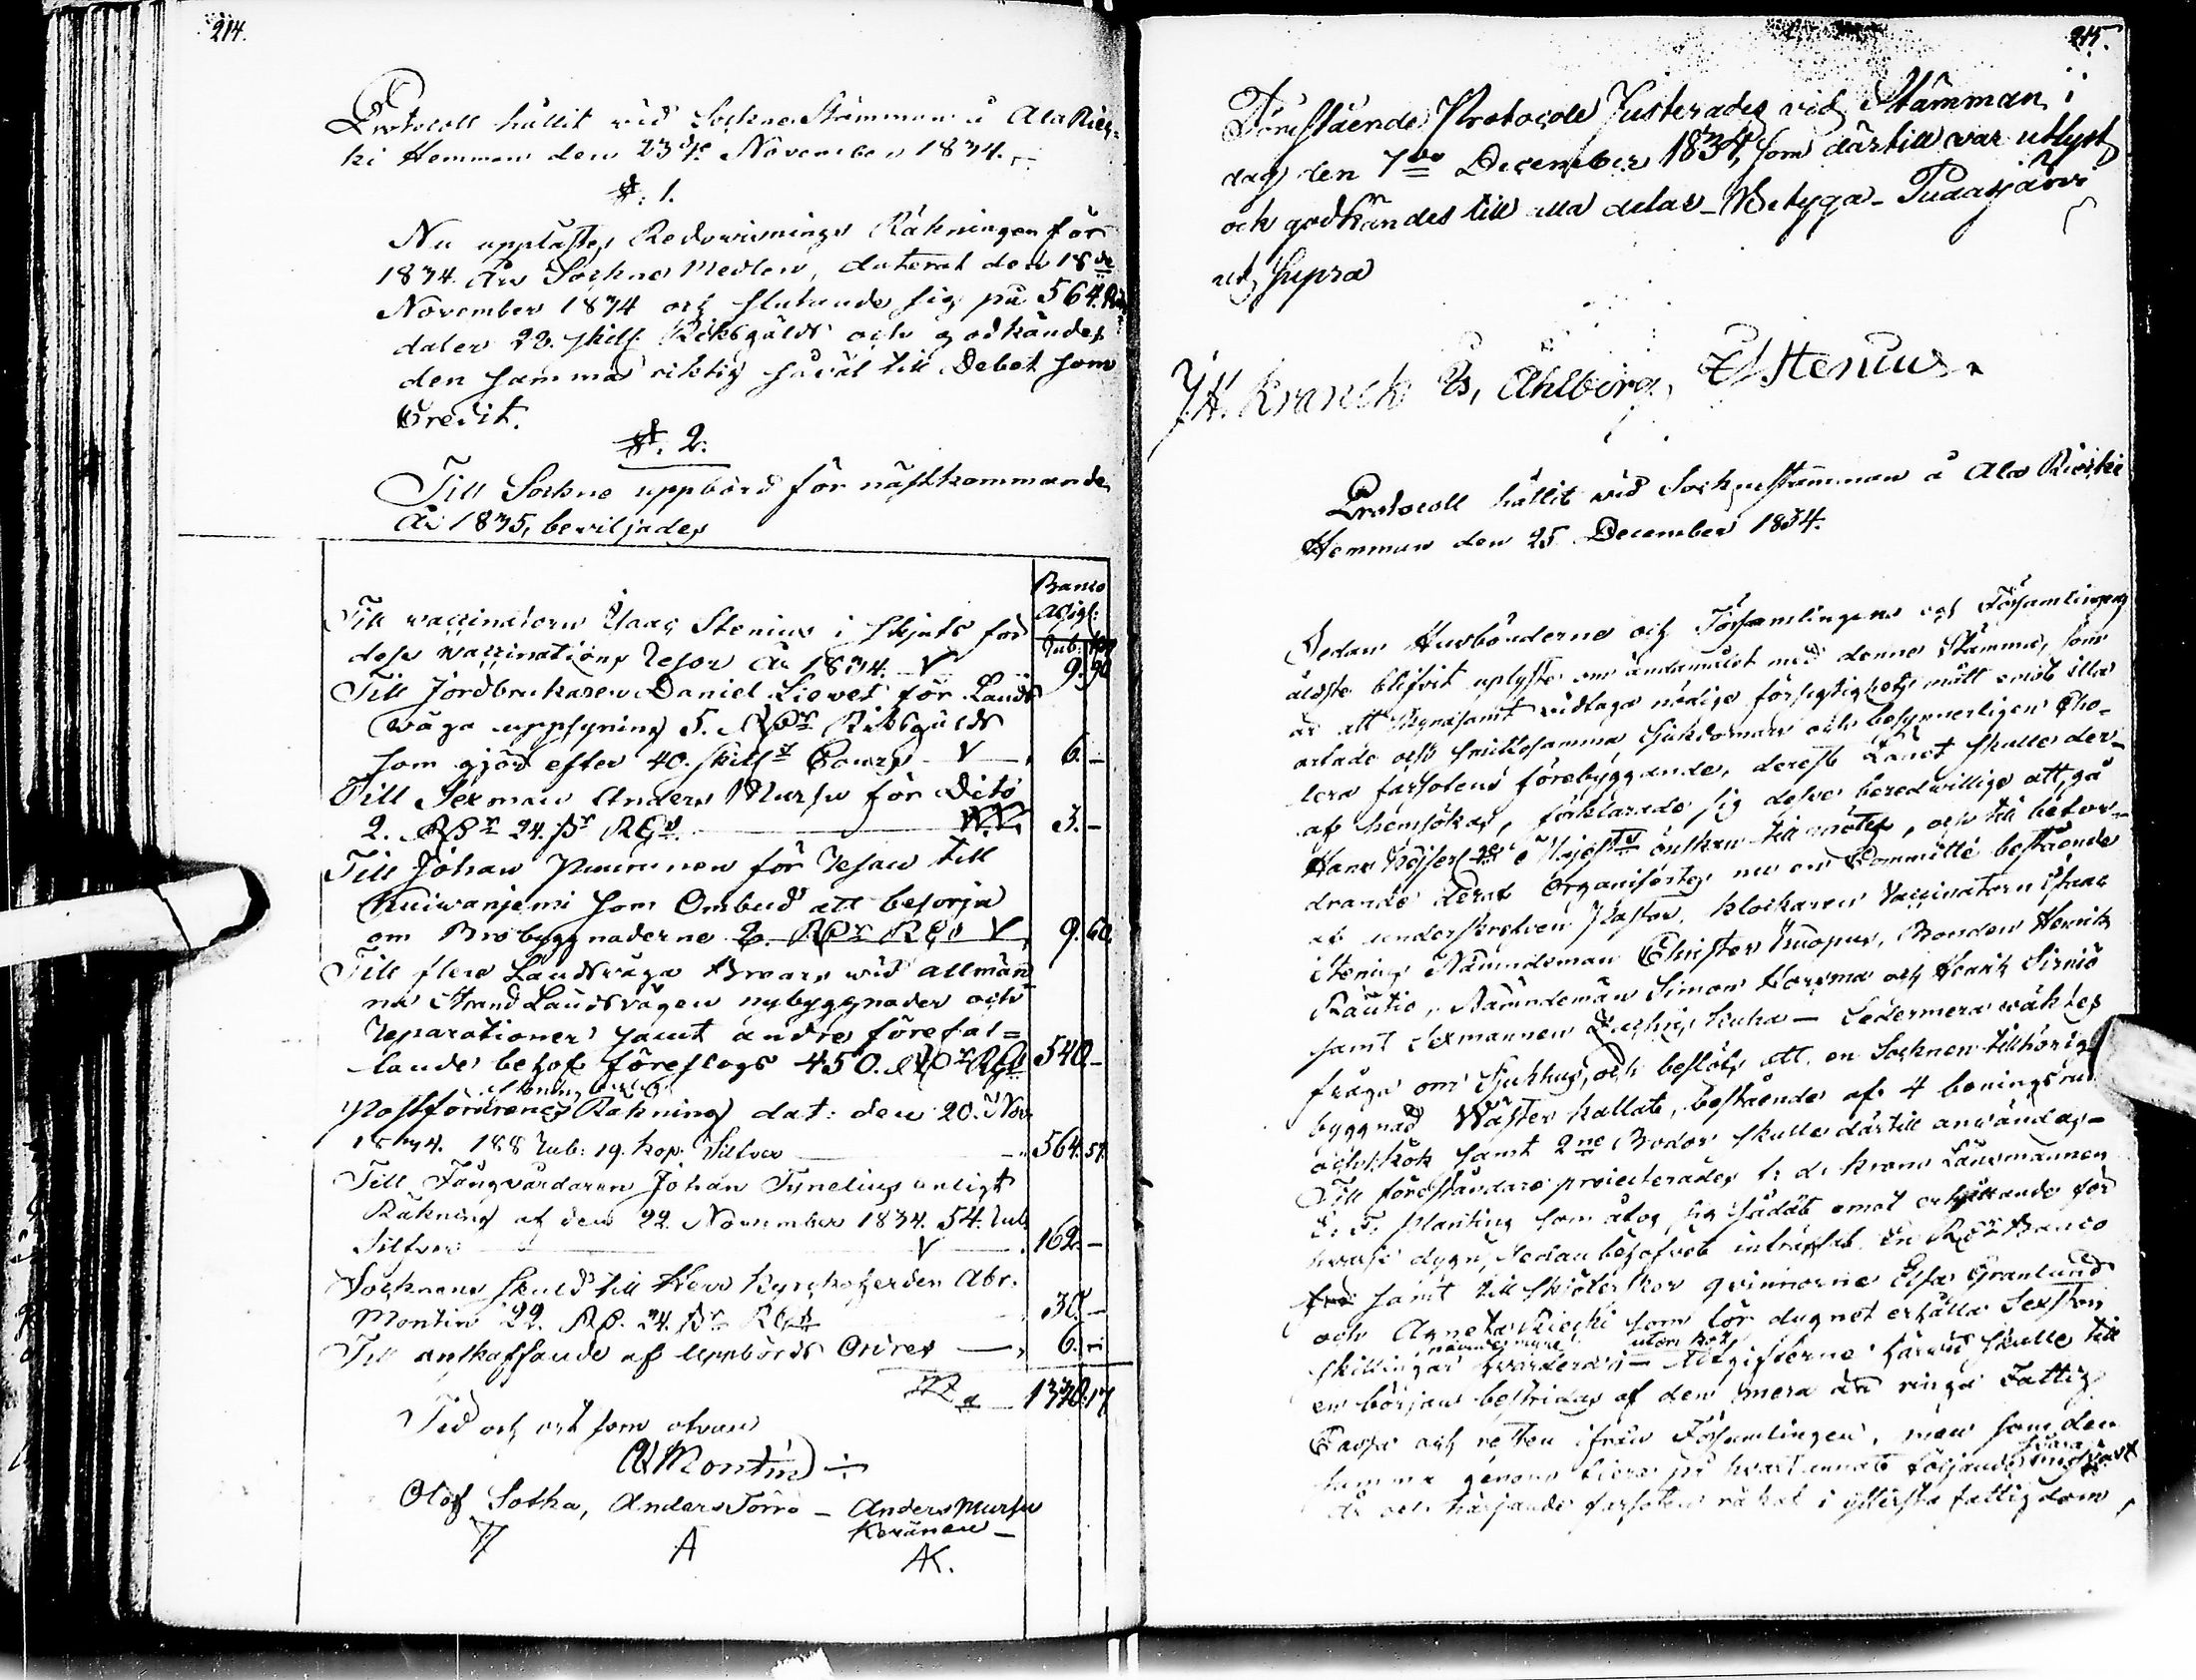 214.
Protocoll hållit vid Sockne Stämman å Ala Ries-
ki Hemman den 23de November 1834.
§. 1.
Nu upplästes Redovisnings Räkningen för
1834 Års Sockne Medlen, daterat den 18de
November 1834 och slutande sig på 564. Riks
daler 22. skill. Riksgälds och godkändes
den samma riktig såväl till Debet som
Credit.
§. 2.
Till Sockne uppbörd för nästkommande
År 1835, beviljades
Banco
Assigt:
Rub. kop
Till vaccinatorn Isaac Stenius i skjuts för
dess vaccinations resor År 1834. V 9. 90
Till Jordbrukaren Daniel Lievet för Lands
wägs uppsyning 5. RDr Riksgälds
som gjör efter 40. skill. Cours V 6. –
Till Sexman Anders Mursu för Dito
2. RDr 24. sr RGd 3. –
Till Johan Puurunen för resan till
Kuiwaniemi som Ombud att besörja
om Brobyggnaderne RDr RGd V 9. 60.
Till flere Landsväga Broars vid allmän
na Strand Landsvägen nybyggnader och
reparationer samt andre förefal=
lande behof föreslogs 450. RDr RGd 540. –
Postförarenes Räkning dat: den 20. Nov:
1834. 188 Rub: 19. kop. Silfver 564. 57
Till Fångvårdaren Johan Tynelius enligt
Räkning af den 22. November 1834. 54. Rub
Silfver V 162. –
Socknens skuld till Herr Kyrckoherden Abr.
Montin 22. RD. 24. sr RGd 30. –
Till anskaffande af Uppbörds Ordres 6. –
Sa 1330. 17
Tid och ort som ofvan
A Montin
Olof Sotka, Anders Törrö – Anders Mursu
Keränen –
A AK.
215.
Förestående Protocoll Justerades vid Stämman i
dag den 7de December 1834, som därtill var utlyst
och godkändes till alla delar – Betyga – Pudasjärvi
ut supra
J.H. Kranck Is, Åhlberg, Stenius
Protocoll hållit vid Sockne Stämman å Ala Rieski
Hemman den 25 December 1834.
Sedan Husbönderne och Församlingens och Församlingens
äldste blifvit uplyste om ändamålet med denna Stämma, som
är att gemensamt vidtaga nödige försigtighets mått emot illa
artade och smittosamma sjukdomar och besynnerligen Cho-
lera farsotens förebyggande, derest Landet skulle der-
af hemsökas, förklarade sig desse beredwillige att gå
Hans Kejserl. Majestts önskan till mötes, och till befor-
drande deraf Organiserades nu en Committé bestående
af underskrefven Pastor, Klockaren Vaccinatorn Isaac
Stenius Nämndeman Christer Kuopus, Bonden Henrik
Rautio, Nämndemän Simon Hors̈ma och Henrik Sirniö
samt Sexmannen Zachris Kuha – Sedermera wäktes
fråga om Sjukhus, och beslöts att en Socknen tillhörig
byggnad Wäster kallat, bestående af 4 boningsrum
och kök samt 2ne Bodor skulle därtill användas –
Till föreståndare projecterades t. d. Krono Länsmannen
Planting som åtog sig sådat emot erhållande för
hvarje dygn, sedan behofvet inträffat En RDr Banco
samt till skjöterskor qvinnorne Elsa Granlund
och Agneta Rieski som lör dygnet erhålla Sexton
skillingar hvardera – utom kost
Utgifterne härvid skulle till
en början bestridas af den mera än ringa Fattig
Cassa och rotten ifrån Församlingen, men som den
samma genom flera på hvart annat följande svåra
år och härjande farsoten råkat i yttersta fattigdom